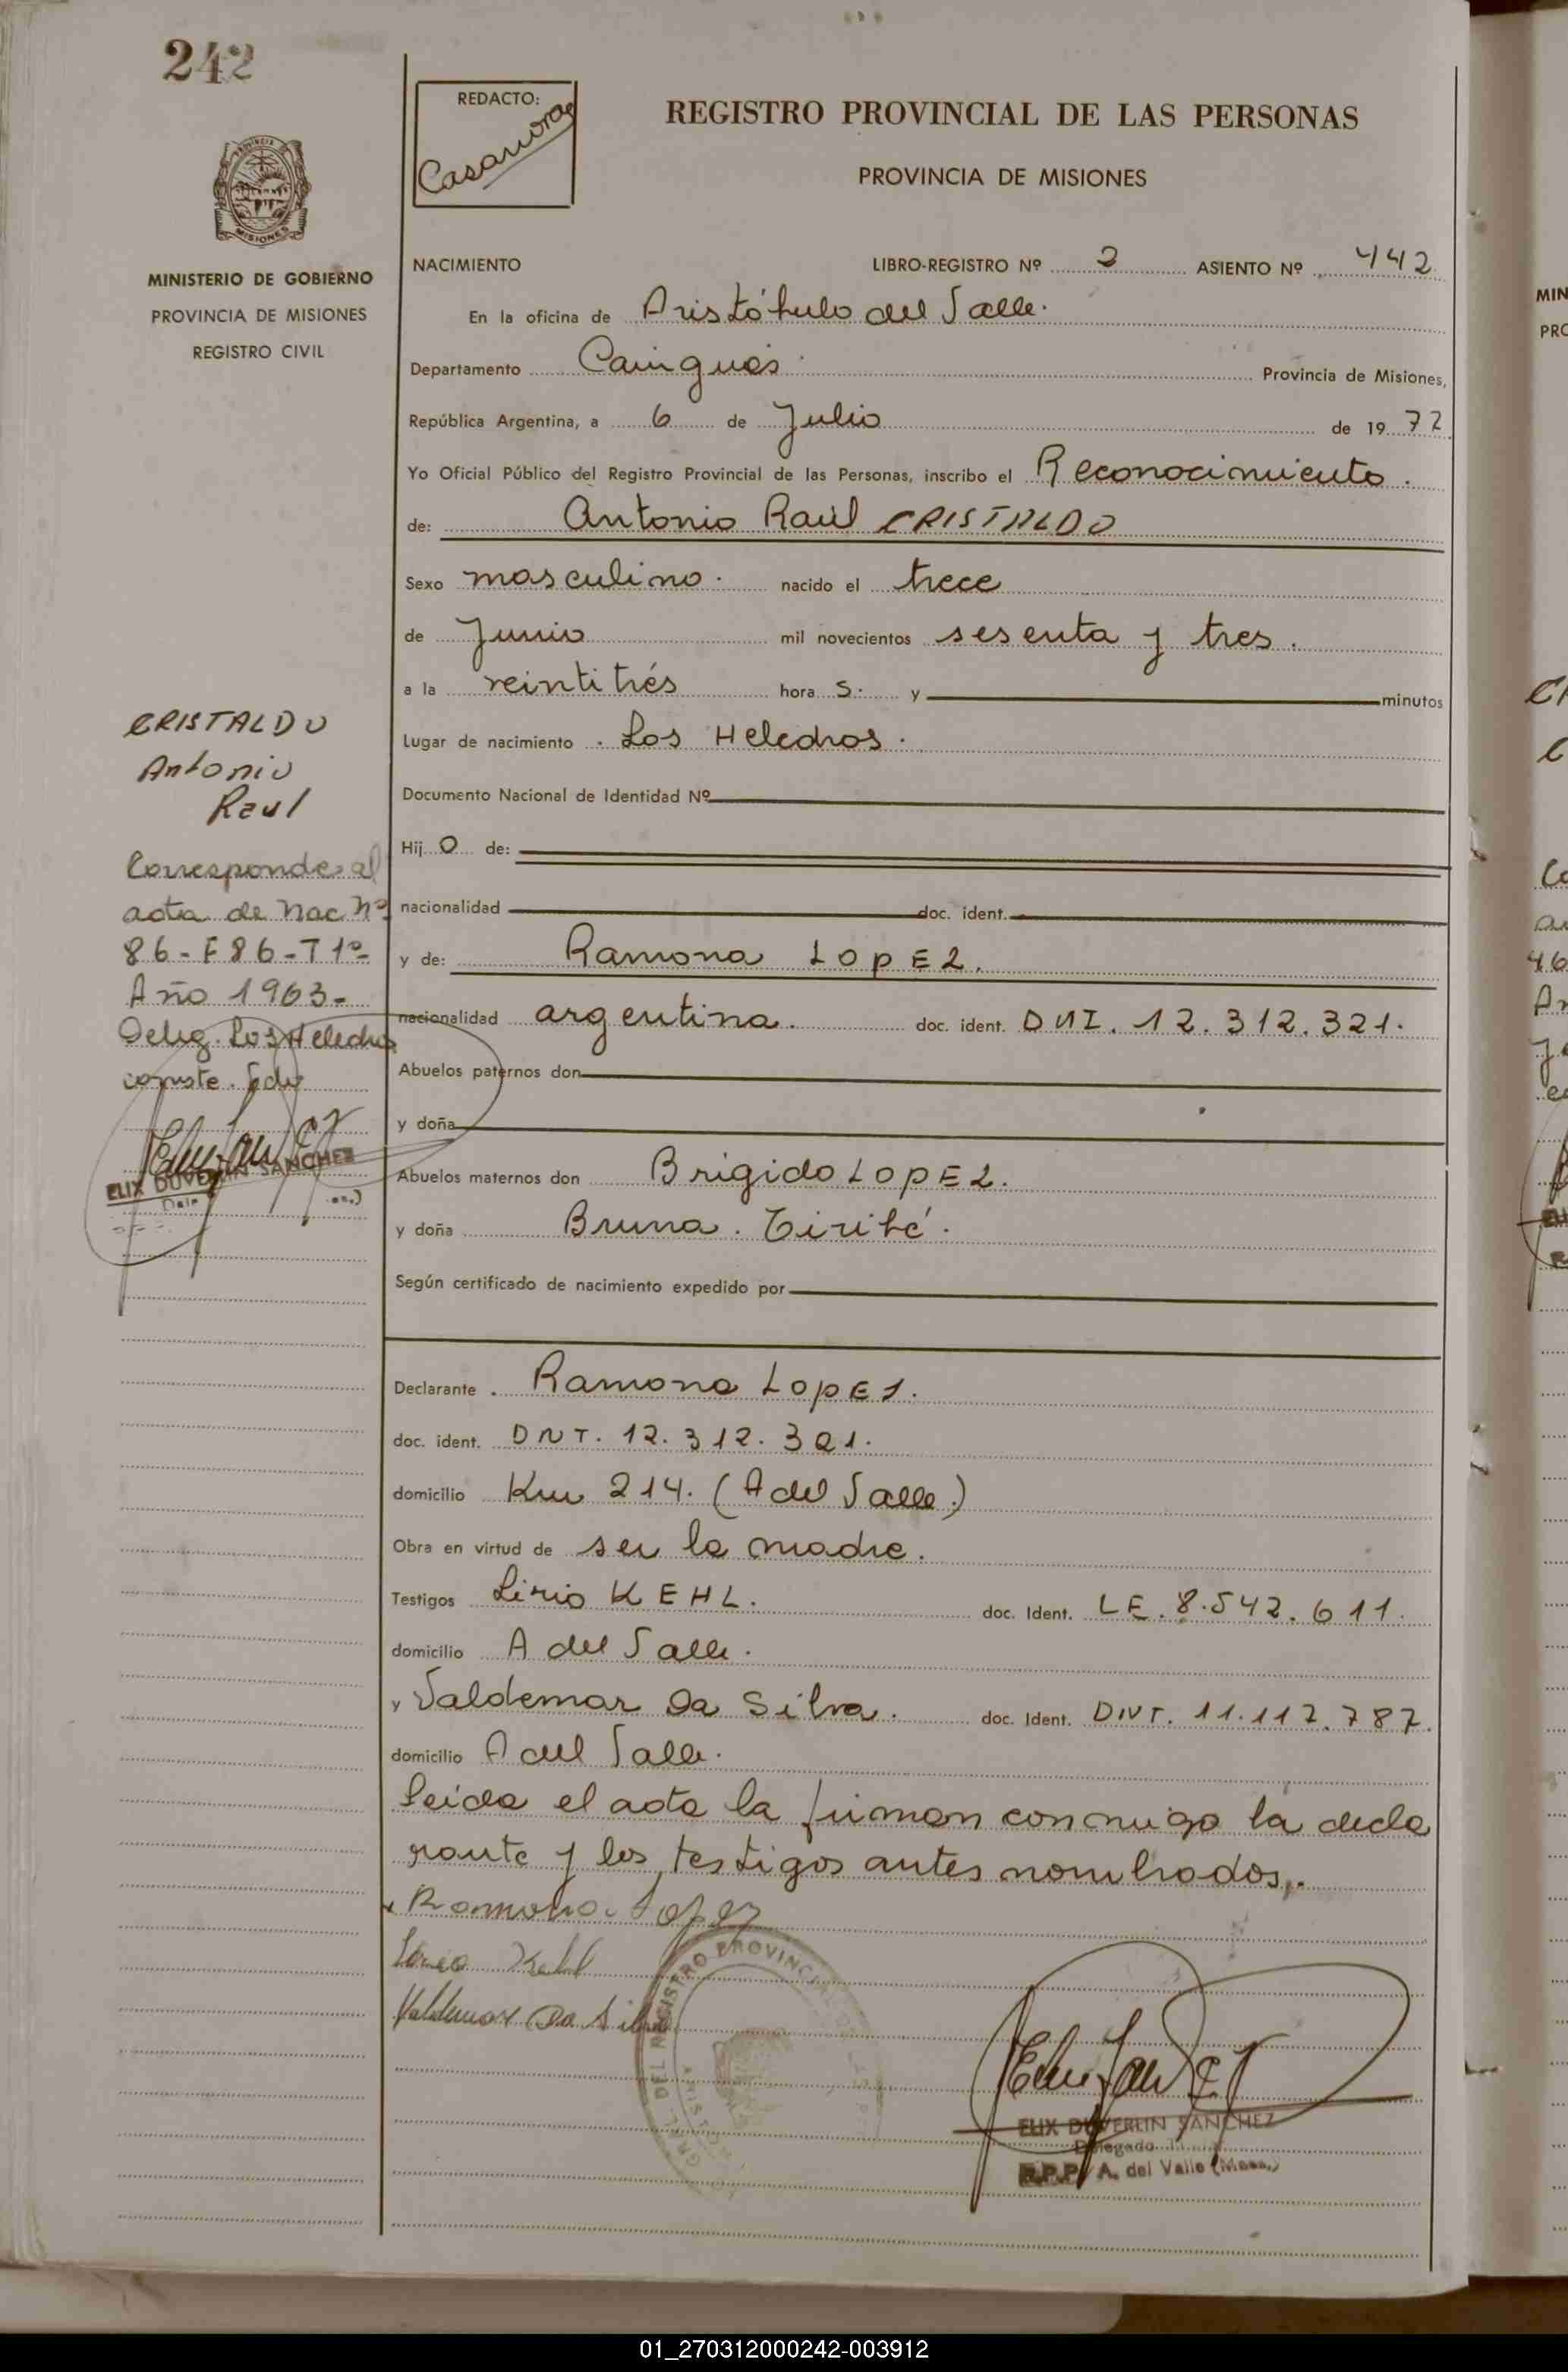 242
REDACTO:
Casanova
REGISTRO PROVINCIAL DE LAS PERSONAS
PROVINCIA DE MISIONES
MISIONES
MINISTERIO DE GOBIERNO
PROVINCIA DE MISIONES
REGISTRO CIVIL
NACIMIENTO LIBRO-REGISTRO Nº 2 ASIENTO Nº 442
En la oficina de Aristóbulo del Valle.
Departamento Cainguás Provincia de Misiones,
República Argentina, a 6 de Julio de 1972
Yo Oficial Público del Registro Provincial de las Personas, inscribo el Reconocimiento.
de: Antonio Raúl CRISTALDO
Sexo masculino. nacido el trece
de Junio mil novecientos sesenta y tres.
a la veintitrés hora s. y minutos
Lugar de nacimiento Los Helechos.
Documento Nacional de Identidad Nº
Hij o de:
nacionalidad doc. ident.
y de: Ramona LOPEZ.
nacionalidad argentina. doc. ident. DNI. 12.312.321.
Abuelos paternos don
y doña
Abuelos maternos don Brigido LOPEZ.
y doña Bruna.
Según certificado de nacimiento expedido por
Declarante Ramona LOPEZ.
doc. ident. DNI. 12.312.321.
domicilio Km 214. (A del Valle.)
Obra en virtud de ser la madre.
Testigos Lirio KEHL. doc. Ident. LE. 8.542.611.
domicilio A del Valle.
y Valdemar Da Silva. doc. Ident. DNI. 11.112.787.
domicilio A del Valle.
Leida el acta la firman conmigo la decla
rante y los testigos antes nombrados,.
Ramona Lopez
Lirio Kehl
Valdemar Da Silva
REGISTRO PROVINCIAL
ELIX DUVERLIN SANCHEZ
Delegado
R.P.P. A. del Valle (Mnes.)
CRISTALDO
Antonio
Raul
Corresponde al
acta de Nac Nº
86-F86-T1º-
Año 1963-
Deleg. Los Helechos
conste.
ELIX DUVERLIN SANCHEZ
01_270312000242-003912